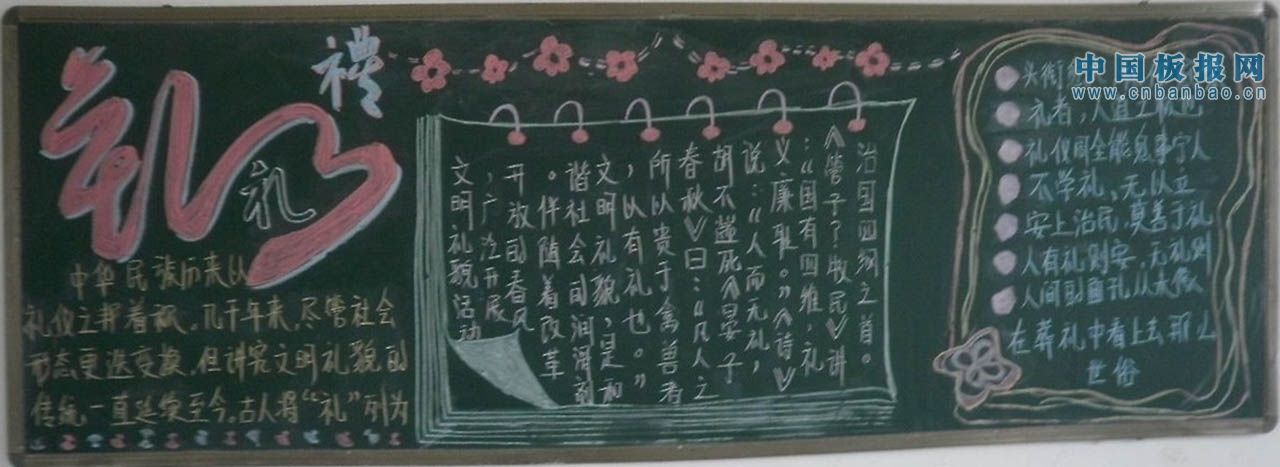 礼
禮
礼
中华民族历来以
礼仪之邦着称，几千年来，尽管社会
形态更迭变换，但讲究文明礼貌的
传统，一直延续至今。古人将“礼”列为
治国四纲之首。
《管子？牧民》讲
：“国有四维，礼
义廉耻。”《诗》
说：“人而无礼，
胡不遄死《晏子
春秋》曰：“凡人之
所以贵于禽兽者
，以有礼也。”
文明礼貌，是和
谐社会的润滑剂
。伴随着改革
开放的春风
，广泛开展
文明礼貌活动
头衔
礼者，人道
礼仪周全能息事宁人
不学礼，无以立
安上治民，莫善于礼
人有礼则安，无礼则
人间
在葬礼中看上去那么
世俗
中国板报网
www.cnbanbao.cn